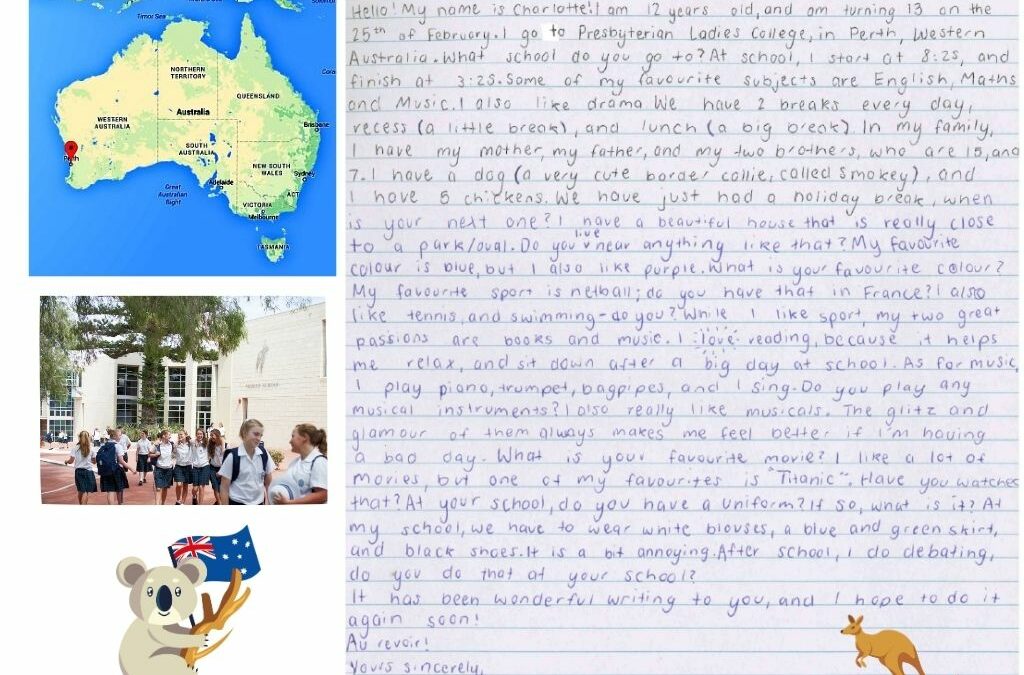 Timor Sea
NORTHERN
TERRITORY
QUEENSLAND
Australia
WESTERN
AUSTRALIA
Brisbane
SOUTH
AUSTRALIA
Perth
NEW SOUTH
WALES
Sydney
Adelaide
ACT
Great
Australian
Bight
VICTORIA
Melbourne
TASMANIA
Hello! My name is Charlotte! I am 12 years old, and am turning 13 on the
25th of February. I go to Presbyterian Ladies College, in Perth, Western
Australia. What school do you go to? At school, I start at 8:25, and
finish at 3:25. Some of my favourite subjects are English, Maths
and Music. I also like drama. We have 2 breaks every day,
recess (a little break), and lunch (a big break). In my family,
I have my mother, my father, and my two brothers, who are 15, and
7. I have a dog (a very cute border collie, called Smokey), and
I have 5 chickens. We have just had a holiday break, when
is your next one? I have a beautiful house that is really close
to a park/oval. Do you live near anything like that? My favourite
colour is blue, but I also like purple. What is your favourite colour?
My favourite sport is netball; do you have that in France? I also
like tennis, and swimming - do you? While I like sport, my two great
passions are books and music. I love reading, because it helps
me relax, and sit down after a big day at school. As for music,
I play piano, trumpet, bagpipes, and I sing. Do you play any
musical instruments? I also really like musicals. The glitz and
glamour of them always makes me feel better if I'm having
a bad day. What is your favourite movie? I like a lot of
movies, but one of my favourites is "Titanic". Have you watched
that? At your school, do you have a uniform? If so, what is it? At
my school, we have to wear white blouses, a blue and green skirt,
and black shoes. It is a bit annoying. After school, I do debating,
do you do that at your school?
It has been wonderful writing to you, and I hope to do it
again soon!
Au revoir!
Yours sincerely,